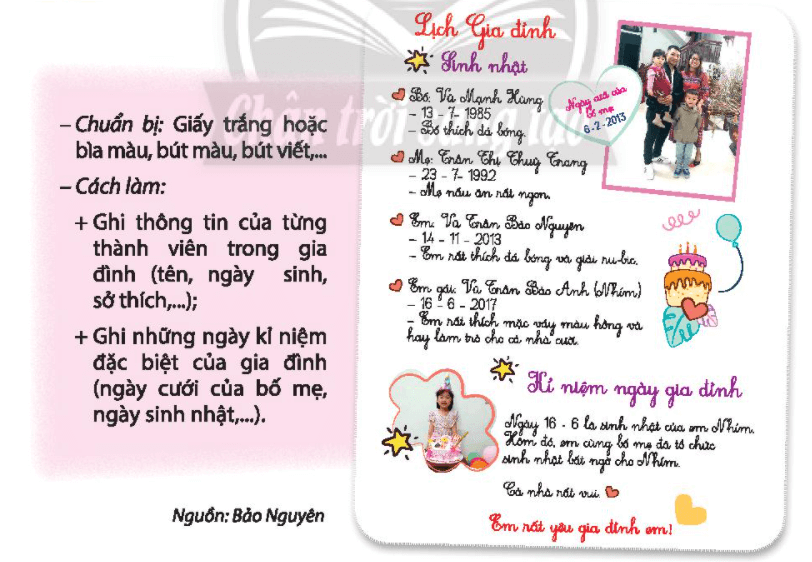 – Chuẩn bị: Giấy trắng hoặc
bìa màu, bút màu, bút viết,...
– Cách làm:
+ Ghi thông tin của từng
thành viên trong gia
đình (tên, ngày sinh,
sở thích,...);
+ Ghi những ngày kỉ niệm
đặc biệt của gia đình
(ngày cưới của bố mẹ,
ngày sinh nhật,...).
Nguồn: Bảo Nguyên
Chân trời sáng tạo
Lịch Gia đình
Sinh nhật
Bố: Vũ Mạnh Hùng
– 13 – 7 – 1985
– Bố thích đá bóng.
Ngày cưới của
bố mẹ
6-2-2013
Mẹ: Trần Thị Thuỳ Trang
– 23 – 7 – 1992
– Mẹ nấu ăn rất ngon.
Em: Vũ Trần Bảo Nguyên
– 14 – 11 – 2013
– Em rất thích đá bóng và giải ru-bic.
Em gái: Vũ Trần Bảo Anh (Nhím)
– 16 – 6 – 2017
– Em rất thích mặc váy màu hồng và
hay làm trò cho cả nhà cười.
Kỉ niệm ngày gia đình
Ngày 16 – 6 là sinh nhật của em Nhím.
Hôm đó, em cùng bố mẹ đã tổ chức
sinh nhật bất ngờ cho Nhím.
Cả nhà rất vui.
Em rất yêu gia đình em!